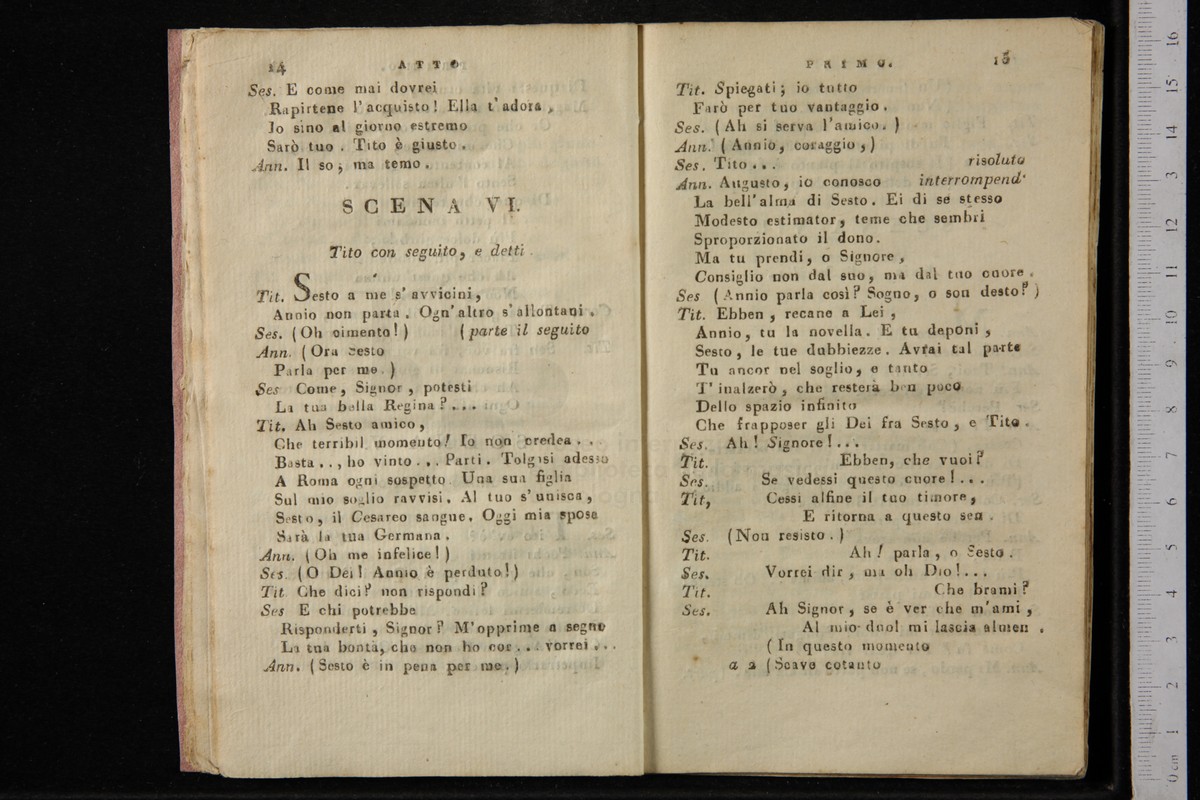 14 ATTO
Ses. E come mai dovrei
Rapirtene l'acquisto! Ella t'adora,
Io sino al giorno estremo
Sarò tuo. Tito è giusto.
Ann. Il so; ma temo.
SCENA VI.
Tito con seguito, e detti.
Tit. Sesto a me s'avvicini,
Annio non parta. Ogn'altro s'allontani.
Ses. (Oh cimento!) (parte il seguito
Ann. (Ora Sesto
Parla per me.)
Ses Come, Signor, potesti
La tua bella Regina?....
Tit. Ah Sesto amico,
Che terribil momento! Io non credea..
Basta.., ho vinto... Parti. Tolgasi adesso
A Roma ogni sospetto. Una sua figlia
Sul mio soglio ravvisi. Al tuo s'unisca,
Sesto, il Cesareo sangue. Oggi mia sposa
Sarà la tua Germana.
Ann. (Oh me infelice!)
Ses. (O Dei! Annio è perduto!)
Tit Che dici? non rispondi?
Ses E chi potrebbe
Risponderti, Signor? M'opprime a segno
La tua bontà, che non ho cor... vorrei...
Ann. (Sesto è in pena per me.)
PRIMO. 15
Tit. Spiegati; io tutto
Farò per tuo vantaggio.
Ses. (Ah si serva l'amico.)
Ann. (Annio, coraggio,)
Ses. Tito... risoluto
Ann. Augusto, io conosco interrompend'
La bell'alma di Sesto. Ei di se stesso
Modesto estimator, teme che sembri
Sproporzionato il dono.
Ma tu prendi, o Signore,
Consiglio non dal suo, ma dal tuo cuore.
Ses (Annio parla così? Sogno, o son desto?)
Tit. Ebben, recane a Lei,
Annio, tu la novella. E tu deponi,
Sesto, le tue dubbiezze. Avrai tal parte
Tu ancor nel soglio, e tanto
T'inalzerò, che resterà ben poco
Dello spazio infinito
Che frapposer gli Dei fra Sesto, e Tito.
Ses. Ah! Signore!...
Tit. Ebben, che vuoi?
Ses. Se vedessi questo cuore!...
Tit, Cessi alfine il tuo timore,
E ritorna a questo sen.
Ses. (Non resisto.)
Tit. Ah! parla, o Sesto.
Ses. Vorrei dir, ma oh Dio!...
Tit. Che brami?
Ses. Ah Signor, se è ver che m'ami,
Al mio duol mi lascia almen.
(In questo momento
a 2 (Soave cotanto